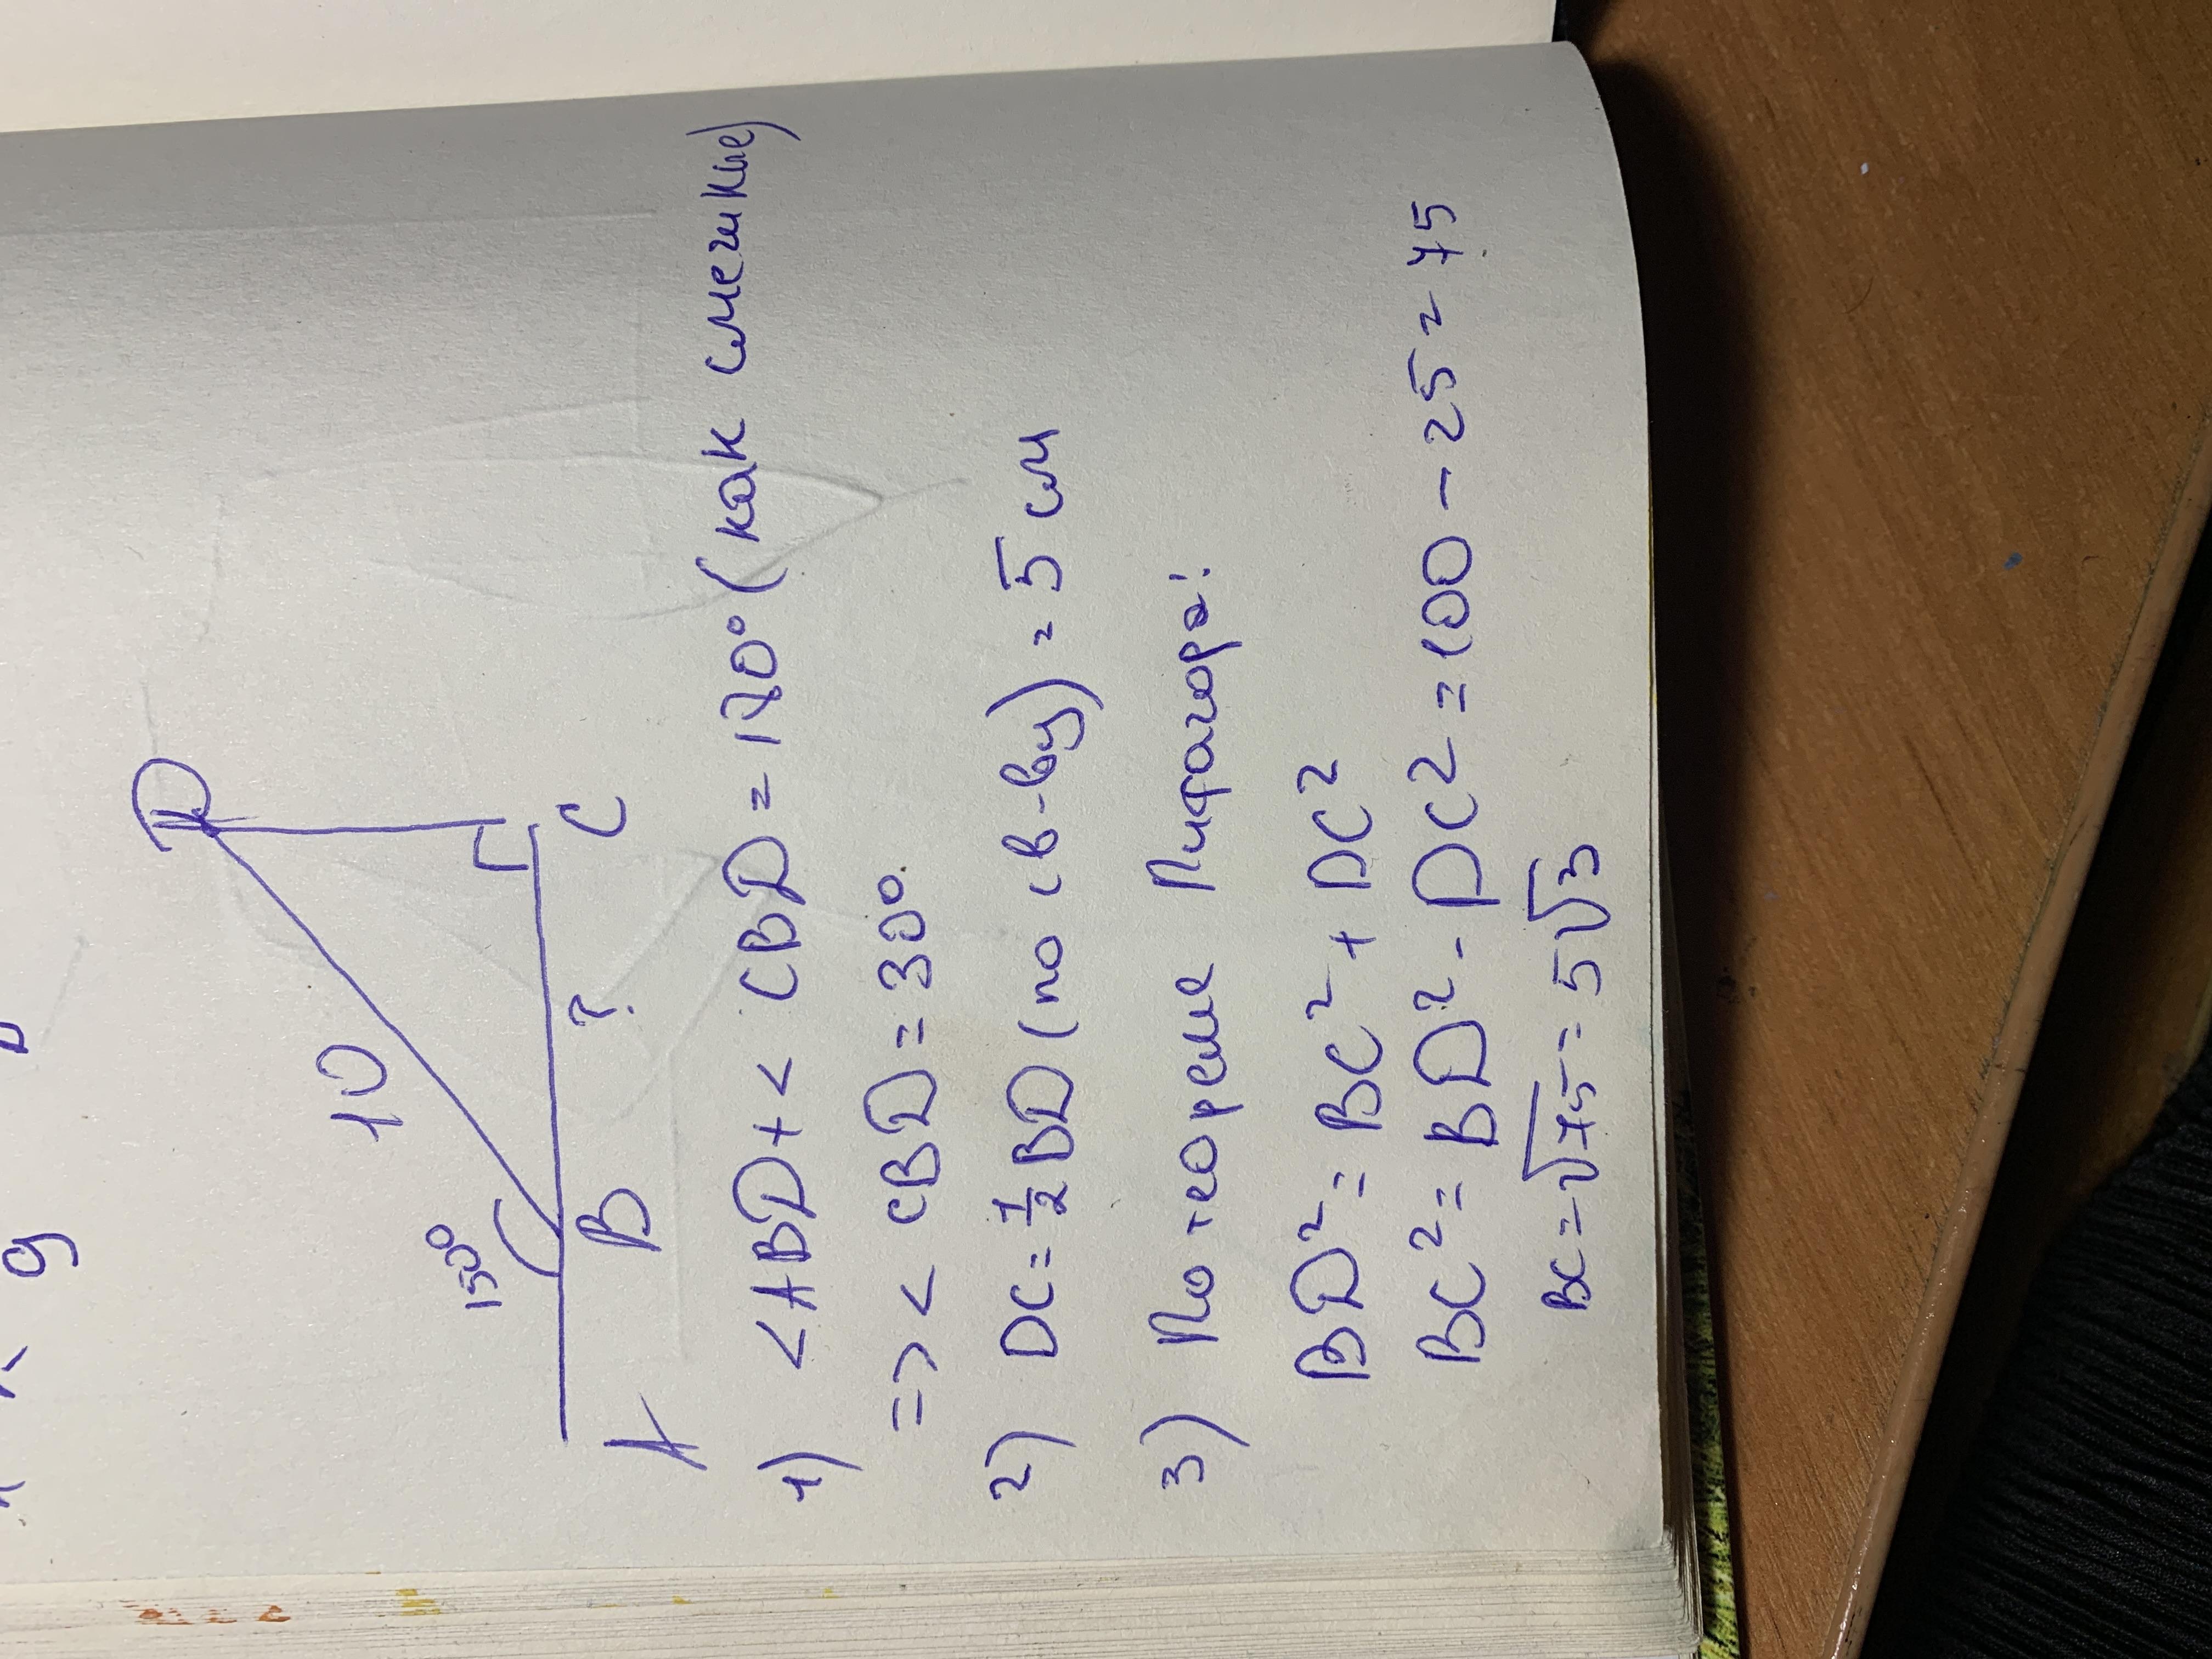 D
10
150°
A
B
?
C
1) <ABD + < CBD = 180° (как смежные)
=> < CBD = 30°.
2) DC = 1/2 BD (по св-ву) = 5 см
3) По теореме Пифагора:
BD² = BC² + DC²
BC² = BD² - DC² = 100 - 25 = 75
BC = √75 = 5√3